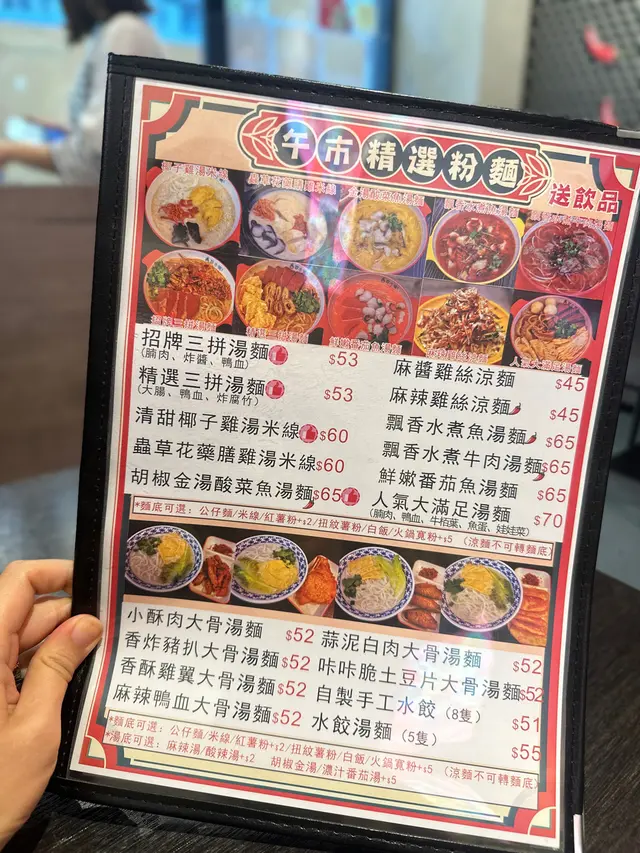 午市精選粉麵
送飲品
椰子雞湯米線
蟲草花藥膳雞米線
金湯酸菜魚湯麵
飄香水煮魚湯麵
招牌三拼湯麵
精選三拼湯麵
鮮嫩番茄魚湯麵
麻辣雞絲涼麵
人氣大滿足湯麵
招牌三拼湯麵 $53
(腩肉、炸醬、鴨血)
精選三拼湯麵 $53
(大腸、鴨血、炸腐竹)
清甜椰子雞湯米線 $60
蟲草花藥膳雞湯米線 $60
胡椒金湯酸菜魚湯麵 $65
麻醬雞絲涼麵 $45
麻辣雞絲涼麵 $45
飄香水煮魚湯麵 $65
飄香水煮牛肉湯麵 $65
鮮嫩番茄魚湯麵 $65
人氣大滿足湯麵 $70
(腩肉、鴨血、牛栢葉、魚蛋、娃娃菜)
*麵底可選：公仔麵/米線/紅薯粉+$2/扭紋薯粉/白飯/火鍋寬粉+$5 (涼麵不可轉麵底)
小酥肉大骨湯麵 $52
香炸豬扒大骨湯麵 $52
香酥雞翼大骨湯麵 $52
麻辣鴨血大骨湯麵 $52
蒜泥白肉大骨湯麵 $52
咔咔脆土豆片大骨湯麵 $52
自製手工水餃 (8隻) $51
水餃湯麵 (5隻) $55
*麵底可選：公仔麵/米線/紅薯粉+$2/扭紋薯粉/白飯/火鍋寬粉+$5 (涼麵不可轉麵底)
*湯底可選：麻辣湯/酸辣湯+$2 胡椒金湯/濃汁番茄湯+$5